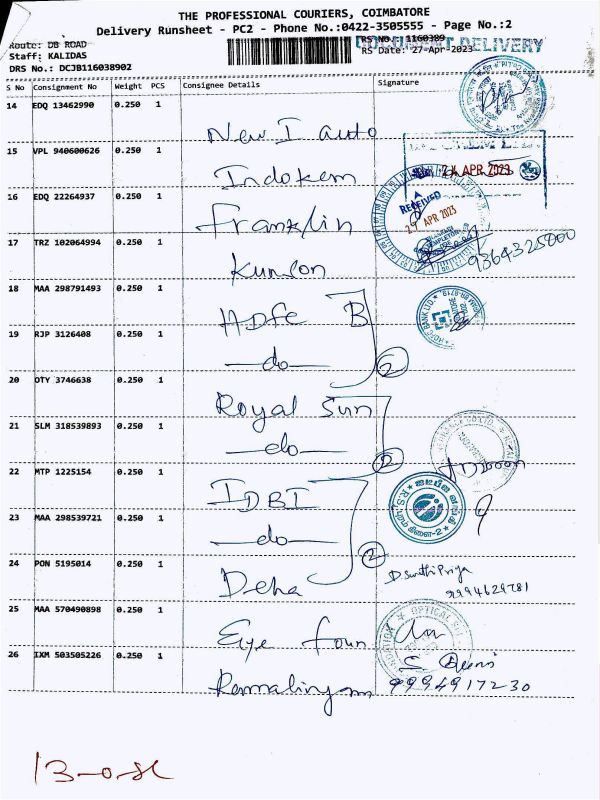 THE PROFESSIONAL COURIERS, COIMBATORE
Delivery Runsheet - PC2 - Phone No.:0422-3505555 - Page No.:2
Route: DB ROAD RS No.: 1160389 DOCUMENT DELIVERY
Staff: KALIDAS RS Date: 27-Apr-2023
DRS No.: DCJB116038902
S No Consignment No Weight PCS Consignee Details Signature
14 EDQ 13462990 0.250 1 New I auto
15 VPL 940600626 0.250 1 Indokem 24 APR 2023
16 EDQ 22264937 0.250 1 Franklin RECEIVED 27 APR 2023
17 TRZ 102064994 0.250 1 Kunson 9364325000
18 MAA 298791493 0.250 1 HDFC B HDFC BANK LTD
19 RJP 3126408 0.250 1 —do— 2
20 OTY 3746638 0.250 1 Royal Sun
21 SLM 318539893 0.250 1 —do— 2
22 MTP 1225154 0.250 1 IDBI
23 MAA 298539721 0.250 1 —do— 2
24 PON 5195014 0.250 1 Deha
9994629781
25 MAA 570490898 0.250 1 Eye foun OPTICAL
26 IXM 503505226 0.250 1
9994917230